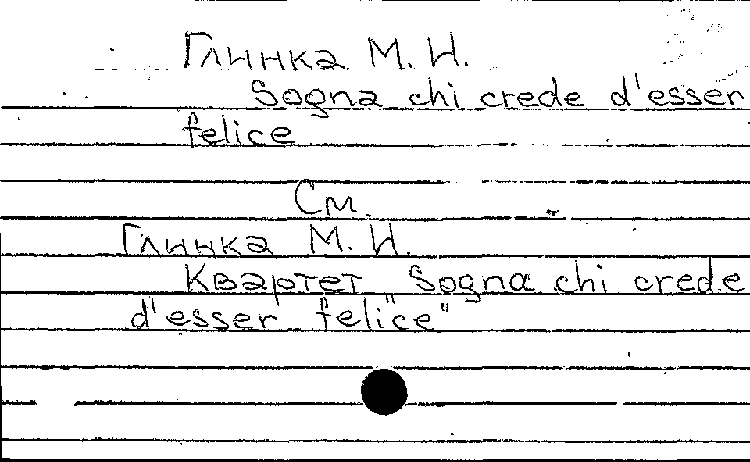 Глинка М. И.
Sogna chi crede d'esser
felice
См.
Глинка М. И.
Квартет "Sogna chi crede
d'esser felice"